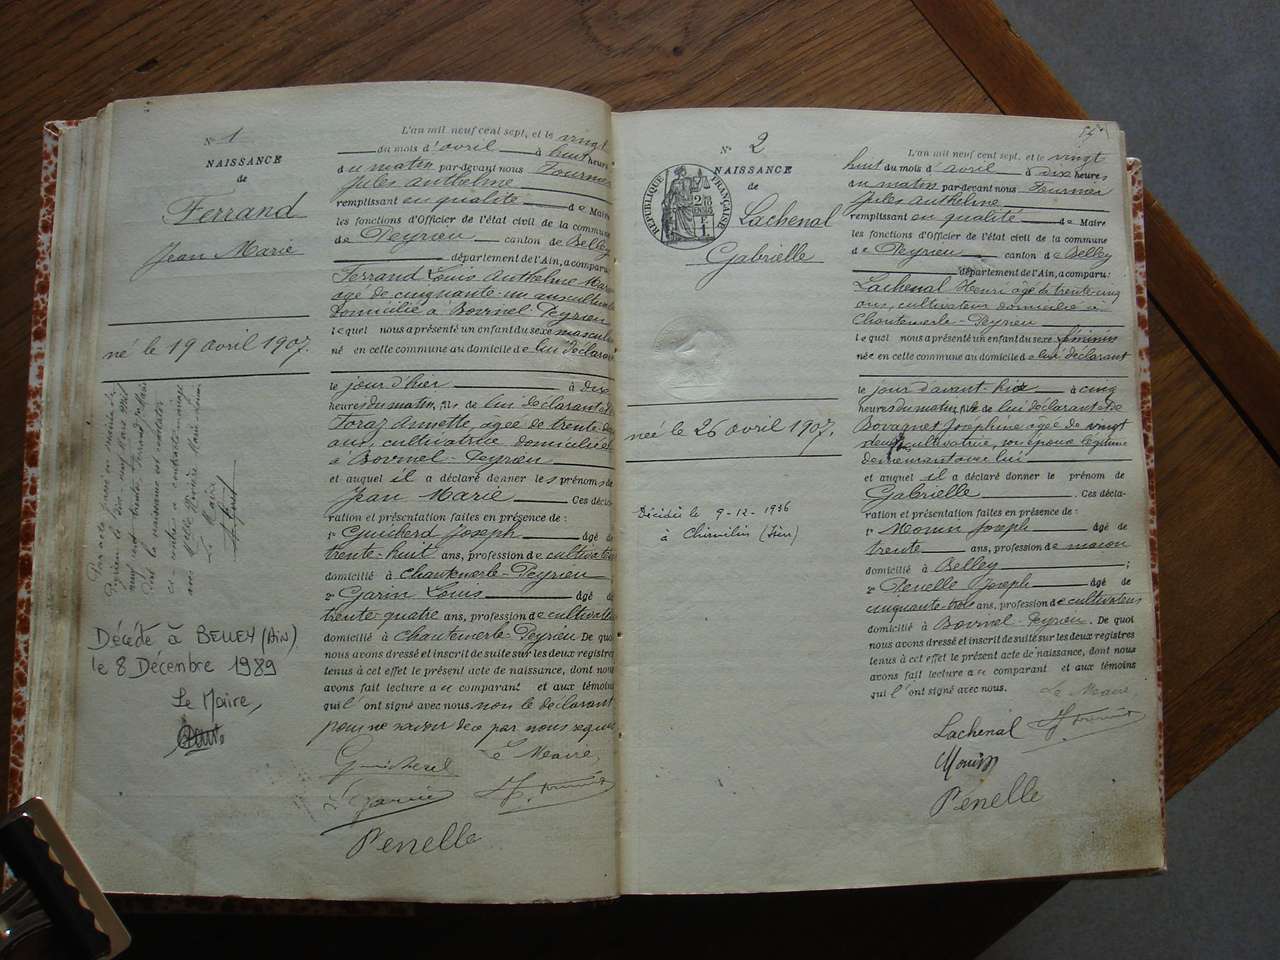 N° 1
NAISSANCE
de
Ferrand
Jean Marie
né le 19 avril 1907.
Décédé à BELLEY (Ain)
le 8 Décembre 1989
Le Maire,
L'an mil neuf cent sept, et le vingt
du mois d'avril à huit heures
du matin par-devant nous Fournier
Jules Anthelme
remplissant en qualité de Maire
les fonctions d'Officier de l'état civil de la commune
de Peyrieu canton de Belley
département de l'Ain, a comparu
Ferrand Louis Anthelme Marie
âgé de cinquante-un ans cultivateur
domicilié à Bovinel-Peyrieu
lequel nous a présenté un enfant du sexe masculin
né en cette commune au domicile de lui déclarant
le jour d'hier à dix
heures du matin, fils de lui déclarant et de
Annette, agée de trente-
ans, cultivatrice, domiciliée
à Bovinel-Peyrieu
et auquel il a déclaré donner les prénoms de
Jean Marie Ces décla-
ration et présentation faites en présence de :
1° Guicherd Joseph âgé de
trente-huit ans, profession de cultivateur
domicilié à Chantemerle-Peyrieu
2° Garin Louis âgé de
trente-quatre ans, profession de cultivateur
domicilié à Chantemerle-Peyrieu. De quoi
nous avons dressé et inscrit de suite sur les deux registres
tenus à cet effet le présent acte de naissance, dont nous
avons fait lecture a ce comparant et aux témoins
qui l'ont signé avec nous non le déclarant
pour ne savoir de ce par nous requis
Guicherd Le Maire,
L Garin J Fournier
Penelle
N° 2
NAISSANCE
de
RÉPUBLIQUE FRANÇAISE
Lachenal
Gabrielle
née le 26 avril 1907.
Décédée le 9-12-1936
à Chirvilin (Isère)
L'an mil neuf cent sept, et le vingt
huit du mois d'avril à dix heures
du matin par-devant nous Fournier
Jules Anthelme
remplissant en qualité de Maire
les fonctions d'Officier de l'état civil de la commune
de Peyrieu canton de Belley
département de l'Ain, a comparu :
Lachenal Henri âgé de trente-cinq
ans, cultivateur domicilié à
Chantemerle-Peyrieu
lequel nous a présenté un enfant du sexe féminin
née en cette commune au domicile de lui déclarant
le jour d'avant-hier à cinq
heures du matin, fille de lui déclarant et de
Bovagnet Joséphine agée de vingt
deux cultivatrice, son épouse légitime
demeurant avec lui
et auquel il a déclaré donner le prénom de
Gabrielle. Ces décla-
ration et présentation faites en présence de :
1° Monin Joseph âgé de
trente ans, profession de maçon
domicilié à Belley ;
2° Penelle Joseph âgé de
cinquante-trois ans, profession de cultivateur
domicilié à Bovinel-Peyrieu. De quoi
nous avons dressé et inscrit de suite sur les deux registres
tenus à cet effet le présent acte de naissance, dont nous
avons fait lecture a ce comparant et aux témoins
qui l'ont signé avec nous. Le Maire,
Lachenal J Fournier
Monin
Penelle